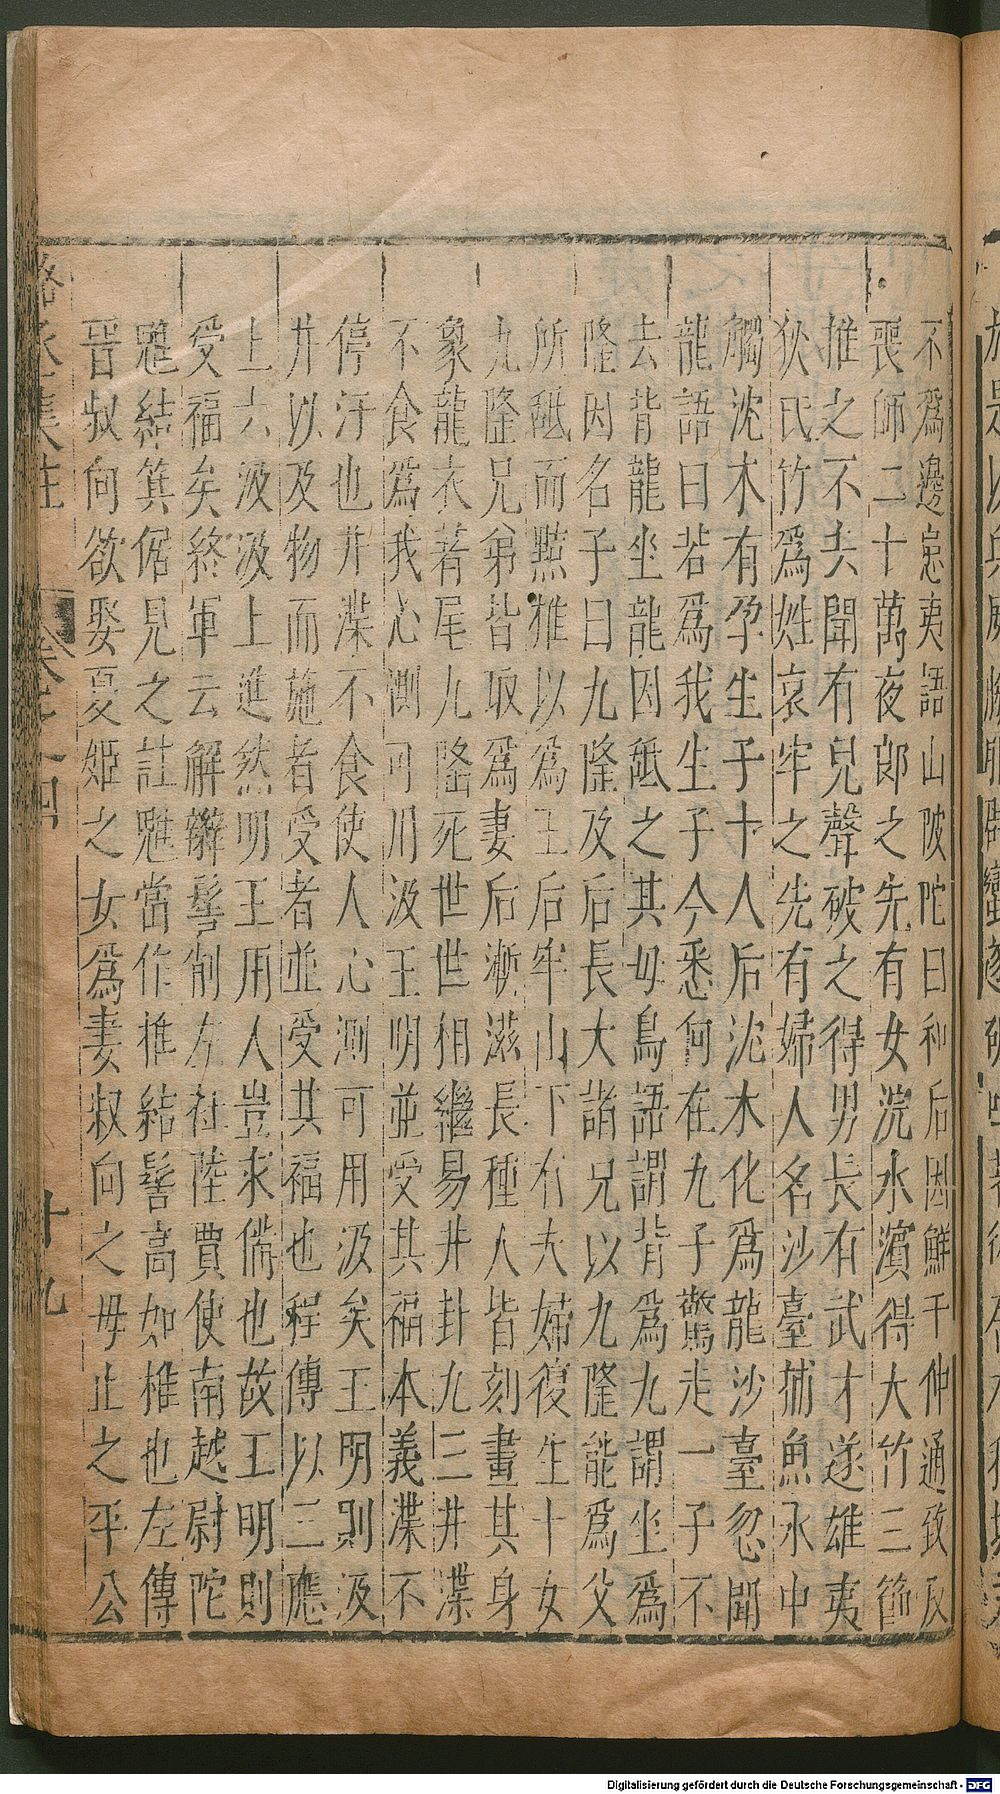 不爲邊患夷語山陂陀曰和后因鮮于仲通致反
喪師二十萬夜郎之先有女浣水濱得大竹三節
推之不去聞有兒聲破之得男長有武才遂雄夷
狄氏竹爲姓哀牢之先有婦人名沙臺捕魚永中
觸沈木有孕生子十人后沈木化爲龍沙臺忽聞
龍語曰若爲我生子今悉何在九子驚走一子不
去背龍坐龍因䑛之其母鳥語謂背爲九謂坐爲
隆因名子曰九隆及后長大諸兄以九隆能爲父
所䑛而黠推以爲王后牢山下有夫婦復生十女
九隆兄弟皆取爲妻后漸滋長種人皆刻畫其身
象龍衣著尾九隆死世世相繼易井卦九三井渫
不食爲我心惻可用汲王明並受其福本義渫不
停汙也井渫不食使人心測可用汲矣王明則汲
井以及物而施者受者並受其福也程傳以三應
上六汲汲上進然明王用人豈求備也故王明則
受福矣終軍云解辮髮削左衽陸賈使南越尉陀
魋結箕倨見之註魋當作椎結髻高如椎也左傳
晉叔向欲娶夏姬之女爲妻叔向之母止之平公
十九
Digitalisierung gefördert durch die Deutsche Forschungsgemeinschaft - DFG